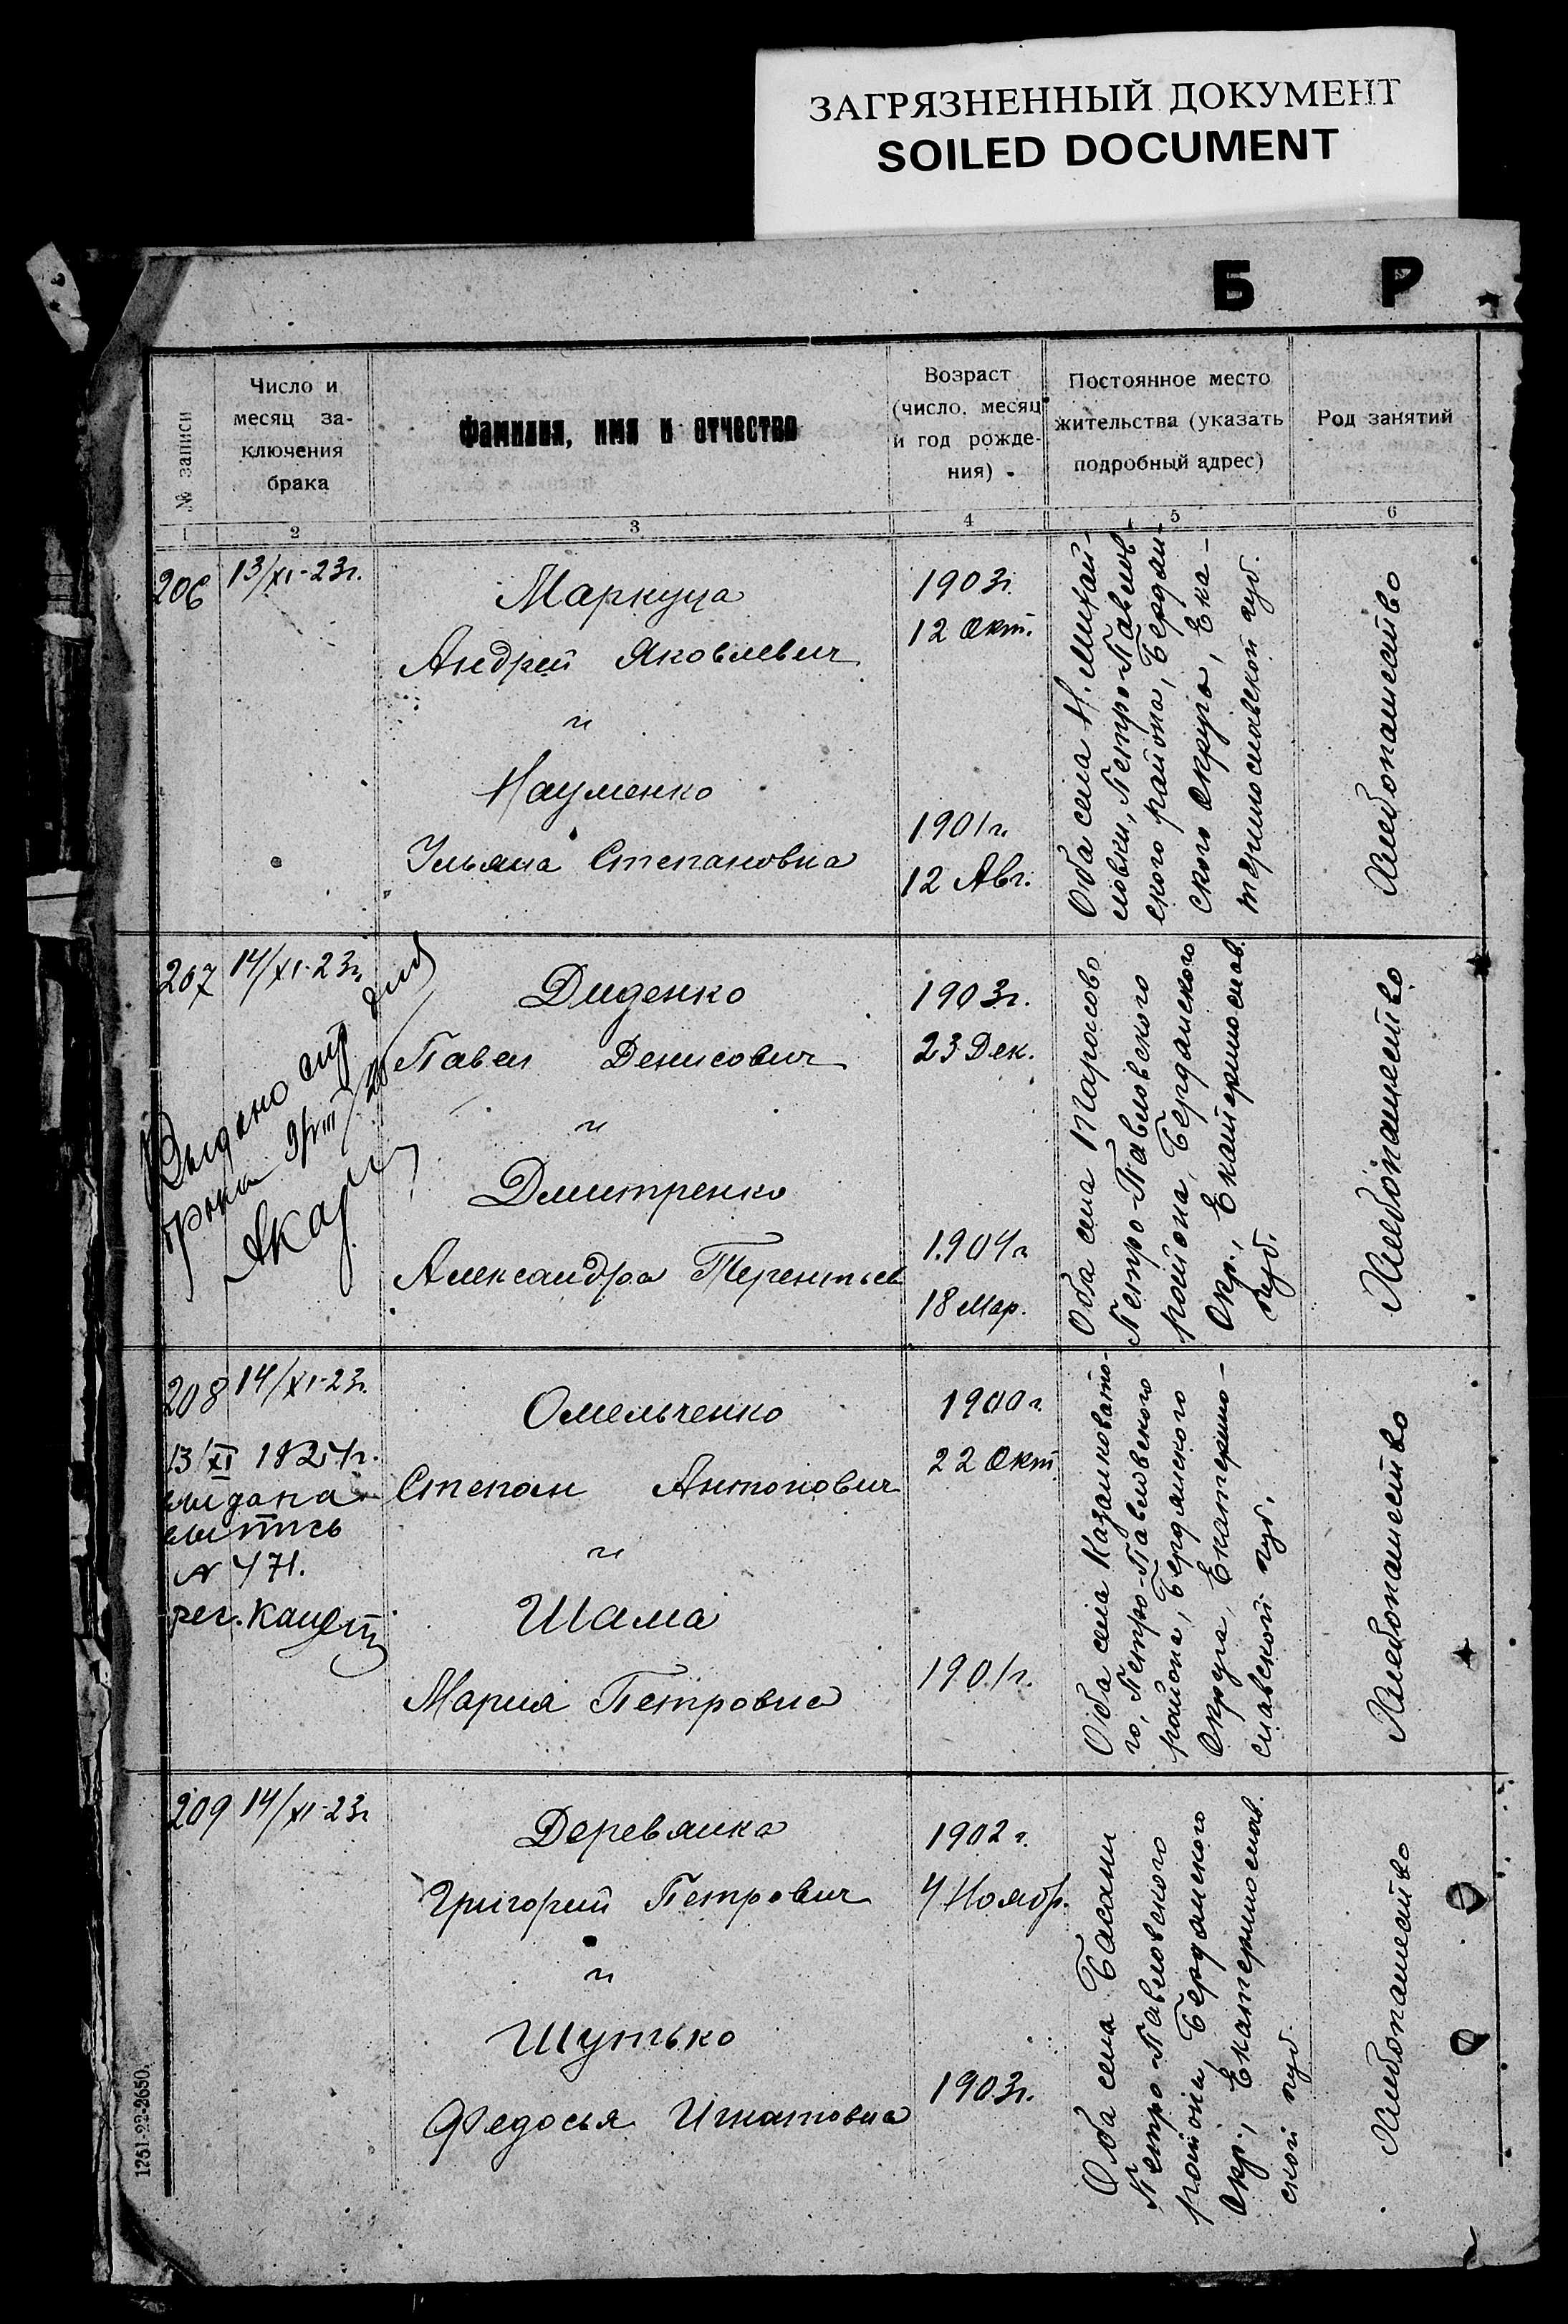 ЗАГРЯЗНЕННЫЙ ДОКУМЕНТ
SOILED DOCUMENT
Б Р
№ записи
Число и
месяц за-
ключения
брака
Фамилия, имя и отчество
Возраст
(число, месяц
и год рожде-
ния)
Постоянное место
жительства (указать
подробный адрес)
Род занятий
1 2 3 4 5 6
206
13/XI-23г.
Маркуца
Андрей Яковлевич
и
Науменко
Ульяна Степановна
1903г.
12 Окт.
1901г.
12 Авг.
Оба села Н. Михай-
ловки, Петро-Павлов-
ского района, Бердян-
ского Округа, Ека-
теринославской губ.
Хлебопашество
207
14/XI-23г.
Выдано
Диденко
Павел Денисович
и
Дмитренко
Александра Терентьев
1903г.
23 Дек.
1904г
18 Мар.
Оба села
Петро-Павловского
района, Бердянского
Окр., Екатеринослав.
губ.
Хлебопашество
208
14/XI-23г.
выдана
выпись
N 471.
Омельченко
Степан Антонович
и
Шама
Мария Петровна
1900г.
22 Окт
1901г.
Оба села Казанковато-
го, Петро-Павловского
района, Бердянского
Округа, Екатерино-
славской губ.
Хлебопашество
209
14/XI-23г
Деревянка
Григорий Петрович
и
Шутько
Федосья Игнатовна
1902г.
4 Ноябр.
1903г.
Оба села Басани
Петро-Павловского
района, Бердянского
Окр., Екатеринослав.
ской губ
Хлебопашество
1251-22-2650.